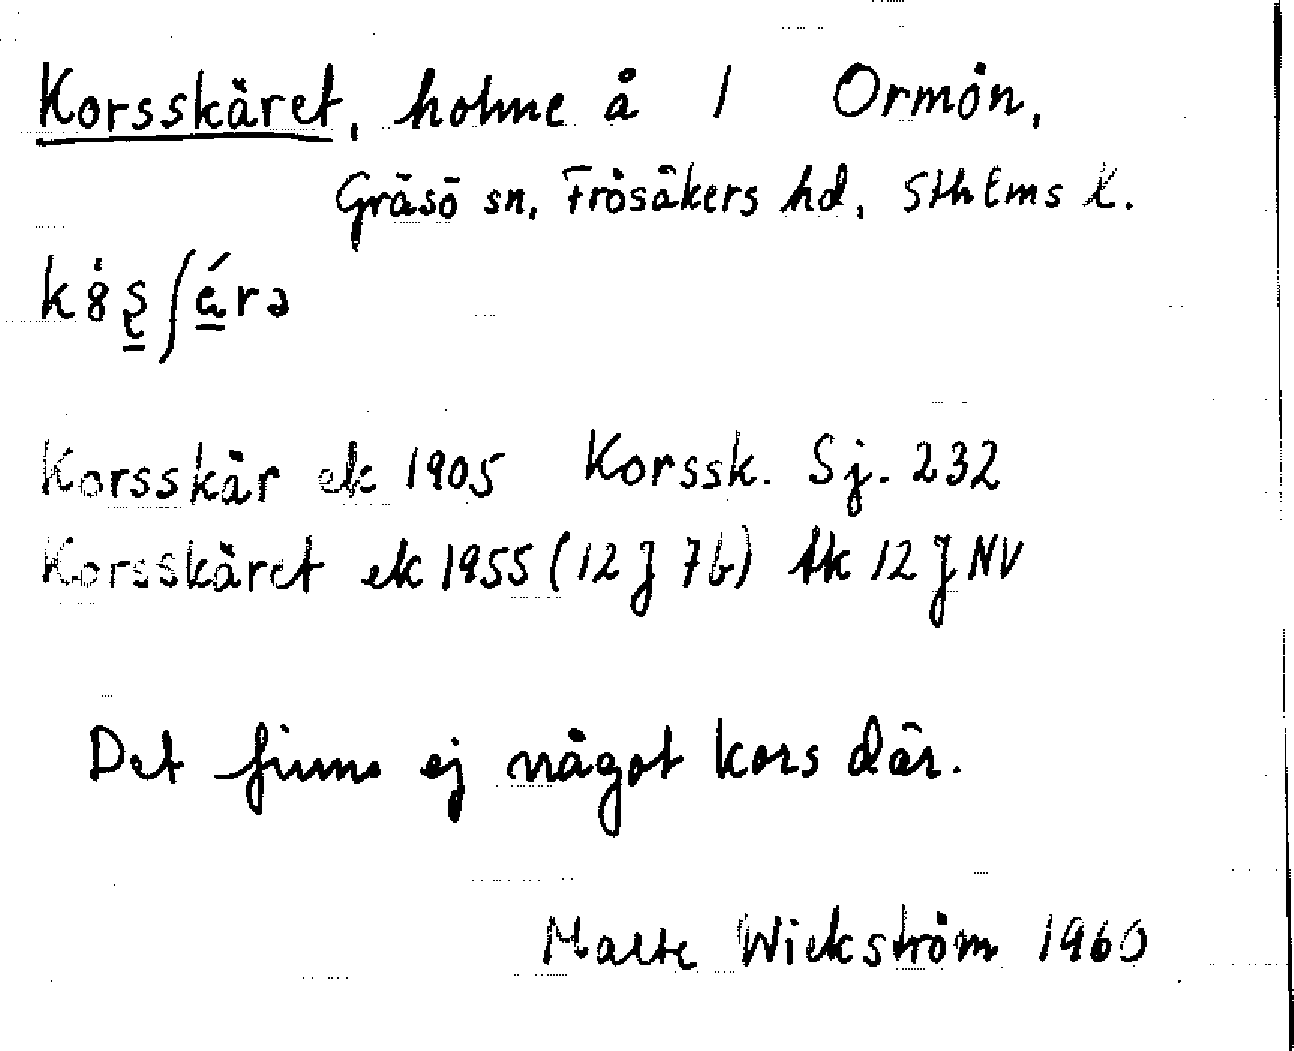 Korsskäret, holme å 1 Ormön,
Gräsö sn, Frösåkers hd, Sthlms l.
Korsskär ek 1905 Korssk. Sj. 232
Korsskäret ek 1955 (12 J 7b) tk 12 J NV
Det finns ej något kors där.
Malte Wickström 1960